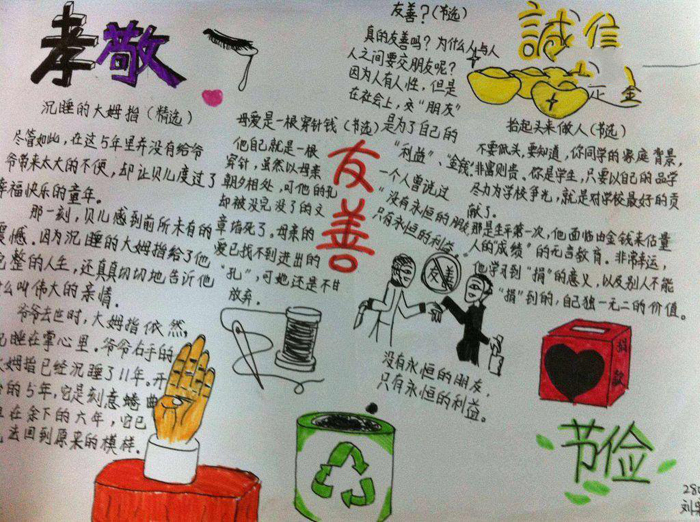 孝敬
沉睡的大姆指(精选)
尽管如此,在这5年里并没有给爷
爷带来太大的不便,却让贝儿度过了
幸福快乐的童年。
那一刻,贝儿感到前所未有的
震憾。因为沉睡的大姆指给了他
完整的人生,还真真切切地告诉他
什么叫伟大的亲情。
爷爷去世时,大姆指依然,
沉睡在掌心里。爷爷右手的
大姆指已经沉睡了11年。开
的5年,它是刻意蜷曲
在余下的六年,它已
去回到原来的模样.
母爱是一根穿针钱(书选)
他自己就是一根
穿针,虽然以母亲
朝夕相处,可他的孔
却被没完没了的文
章堵死了。母亲的
爱已找不到进出的
“孔”,可她还是不甘
放弃.
友善
友善?(书选)
真的友善吗?为什么人与人
人之间要交朋友呢?
因为人有人性,但是
在社会上,交“朋友”
是为了自己的
“利益”、金钱.
一个人曾说过
“没有永恒的朋友
只有永恒的利益。”
友善
没有永恒的朋友.
只有永恒的利益。
誠信
金
抬起头来做人(书选)
不要低头,要知道,你同学的家庭背景,
非富则贵、你是学生,只要以自己的品学
尽力为学校争光,就是对学校最好的贡
献了。
那是生平第一次,他面临由金钱来估量
人的“成绩”的无言教育。非常幸运,
他学习到“捐”的意义,以及别人不能
“捐”到的,自己独一无二的价值。
捐款
节俭